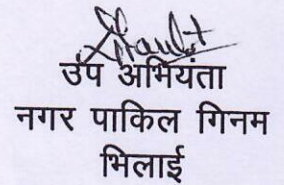 उप अभियंता
नगर पाकिल गिनम
भिलाई